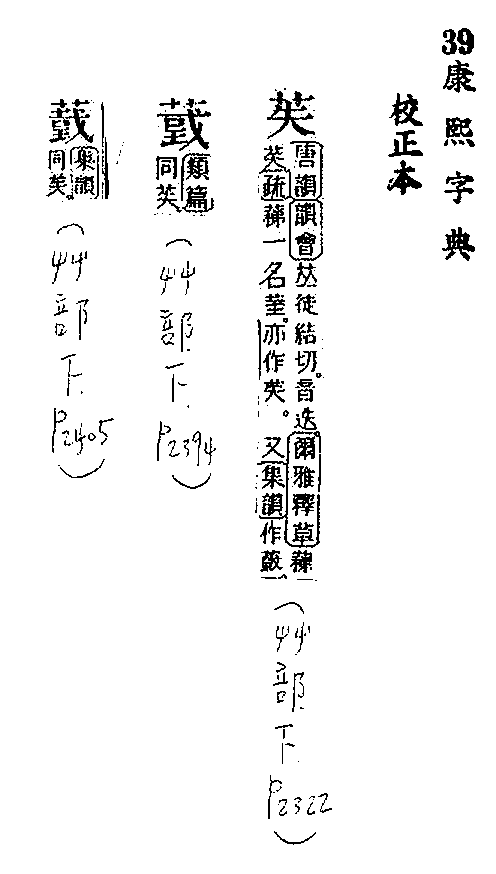 39康熙字典
校正本
苵
唐韻韻會𠀤徒結切。音迭。爾雅釋草蕛
苵疏蕛一名苵。亦作英。又集韻作蕺。
(艸部下P2322)
類篇
同苵
(艸部下P2394)
集韻
同苵。
(艸部下P2405)